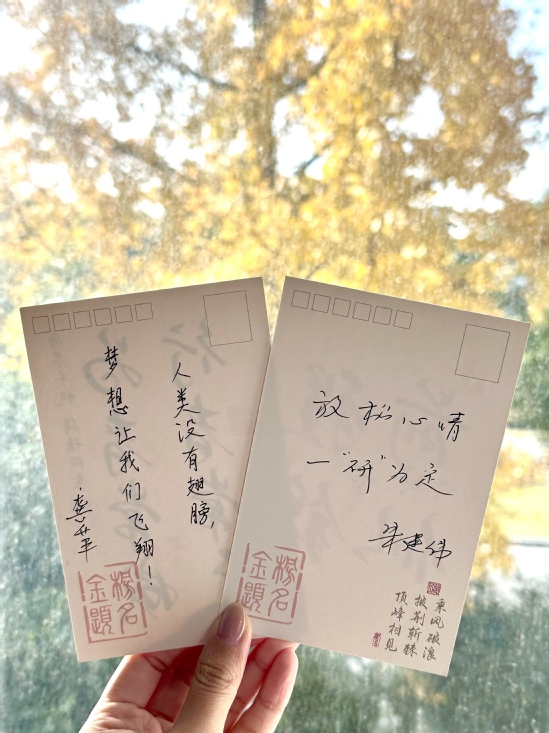 人类没有翅膀，
梦想让我们飞翔！
龚苹
金榜题名
放松心情
一"研"为定
朱建伟
金榜题名
乘风破浪
披荆斩棘
顶峰相见